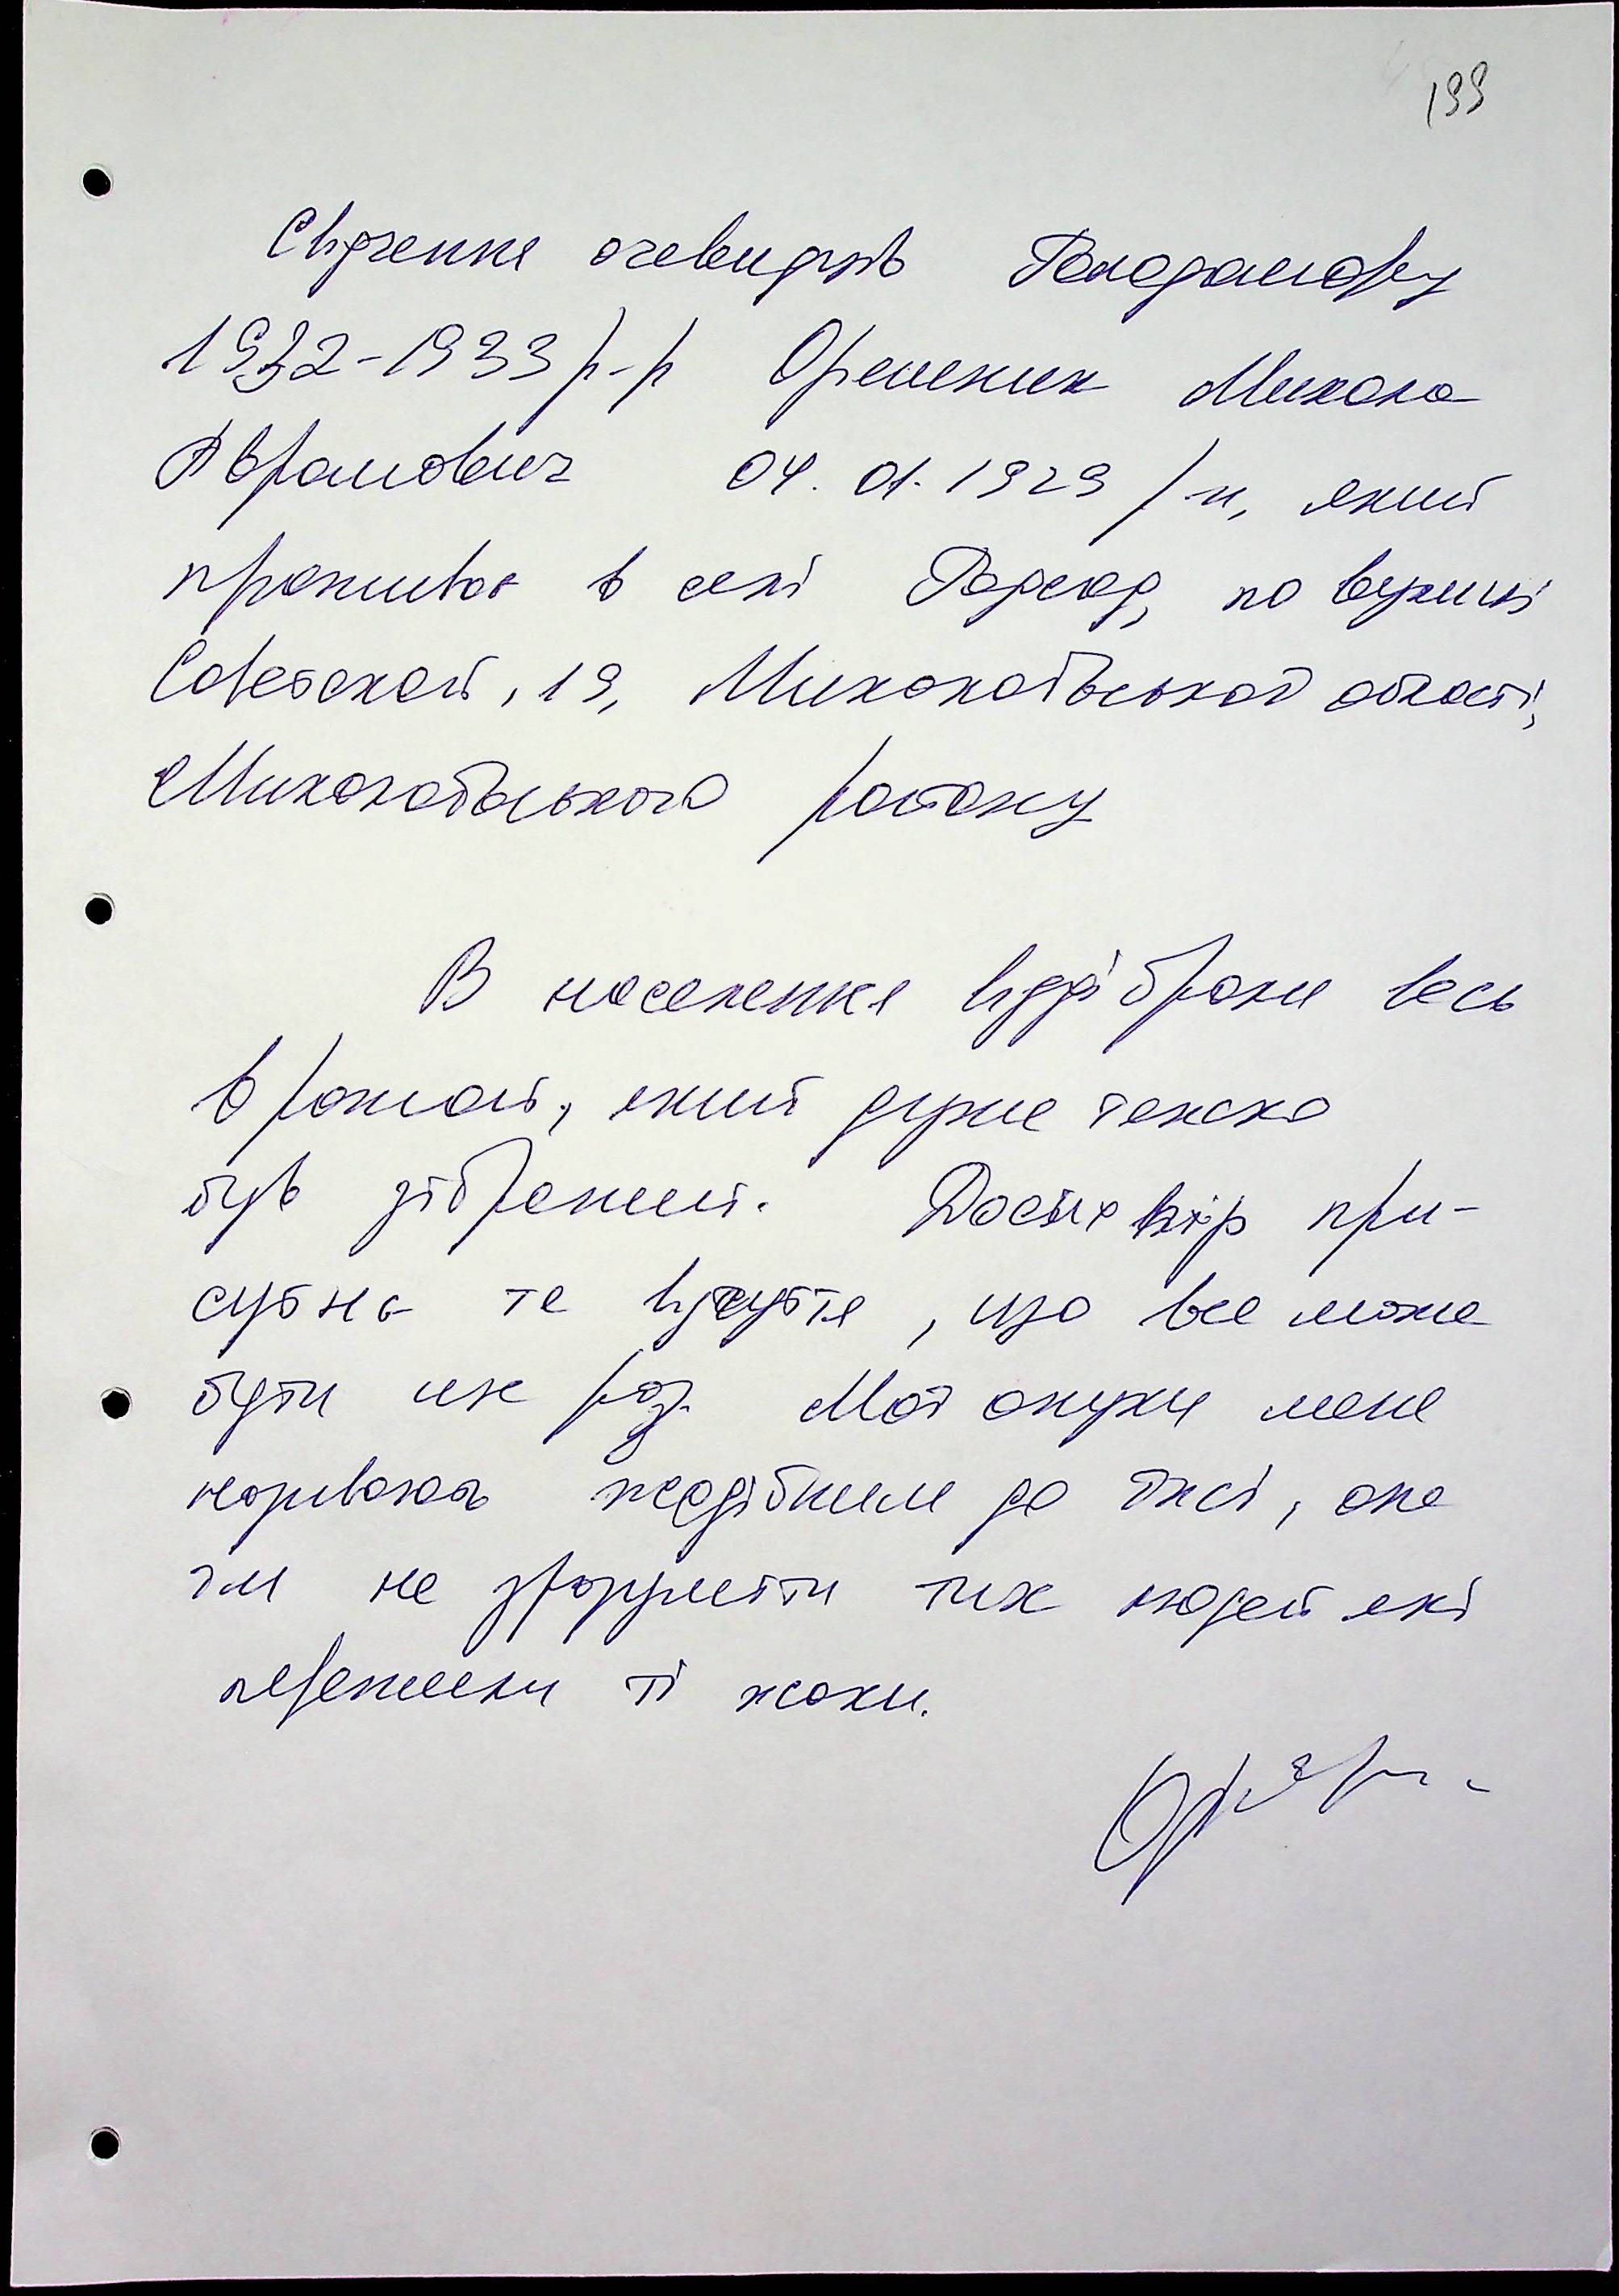 199
Свідчення очевидців Голодомору
1932-1933 р-р Ременик Микола
Аврамович 04.01.1929 р-н, який
проживає в селі Радсад, по вулиці
Советской, 19, Миколаївської області,
Миколаївського району
В населення відібрали весь
врожай, який дуже тяжко
був зібраний. Досіх пір при-
сутнє те відчуття, що все може
бути ще раз. Мої онуки мене
називають жадібним до їжі, але
їм не зрозуміти тих людей які
пережили ті жахи.